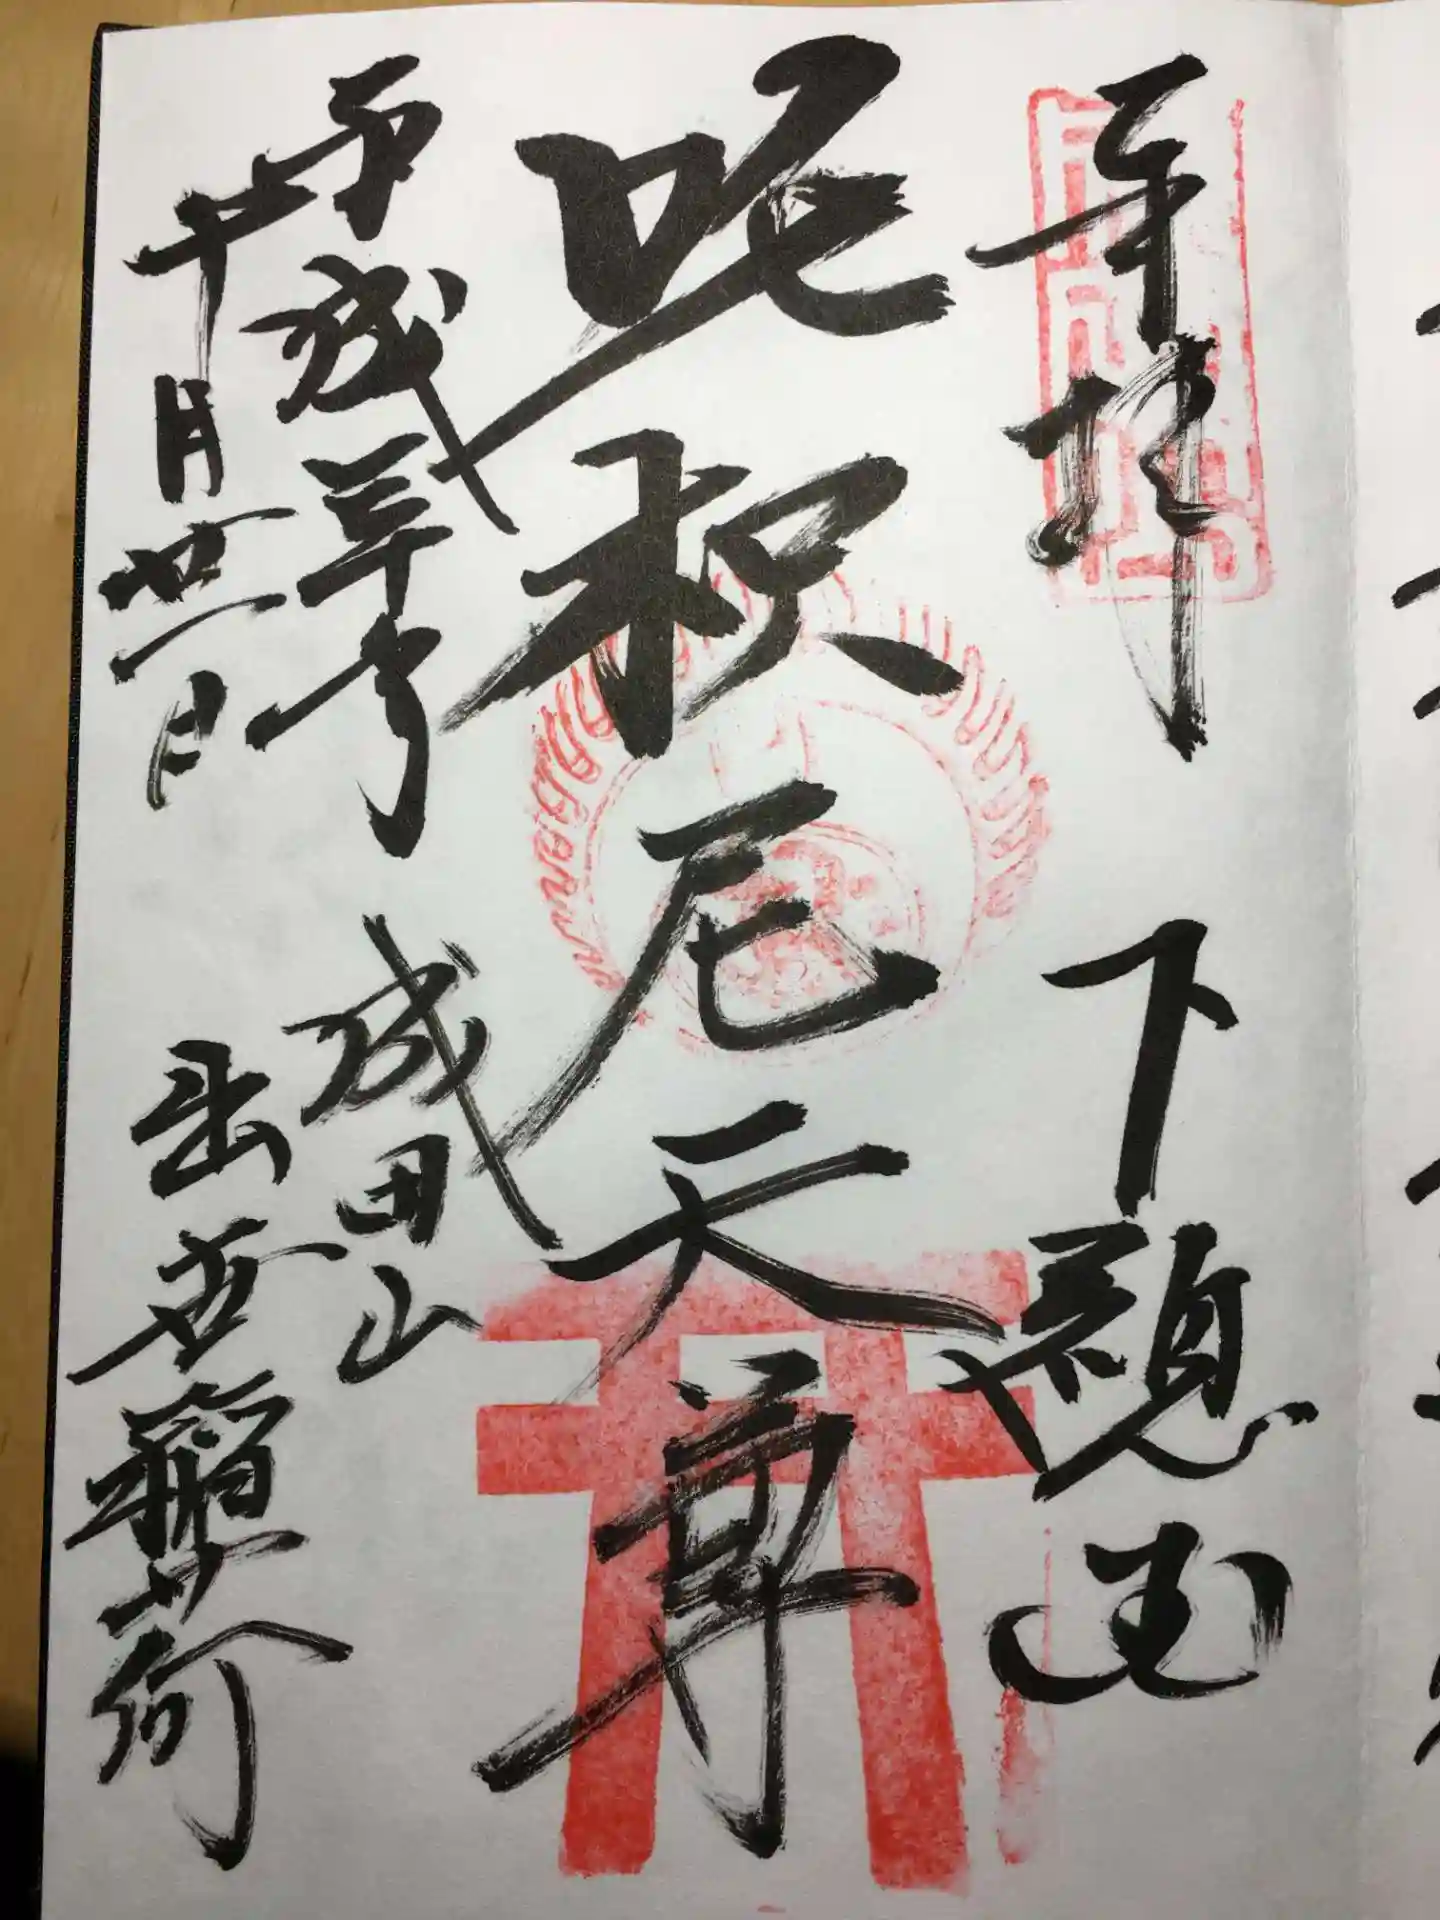 奉拝 下総国
吒枳尼天尊
平成三十年 成田山
十月廿一日 出世稲荷